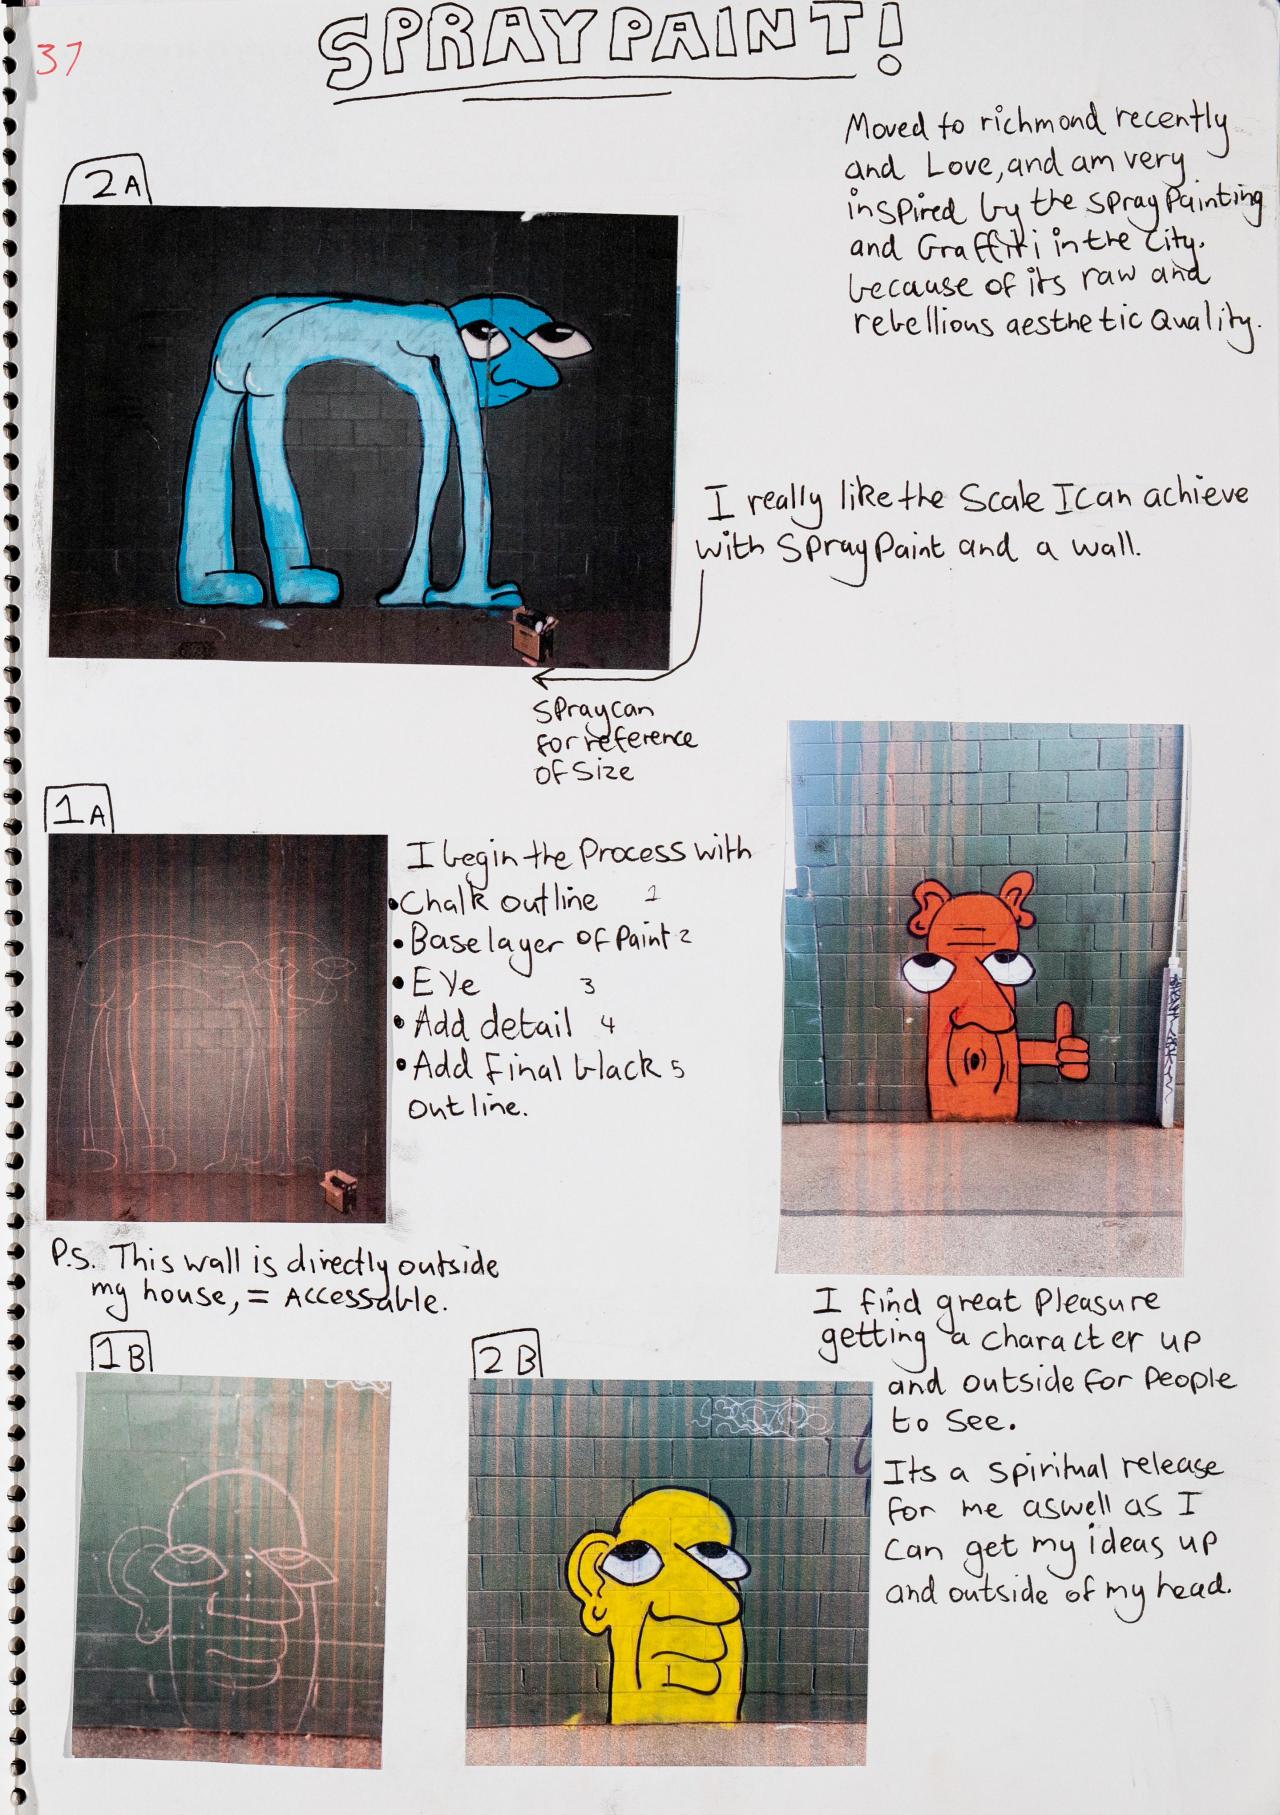 37
SPRAYPAINT!
Moved to richmond recently
and Love, and am very
inspired by the spray Painting
and Graffiti in the City.
because of its raw and
rebellious aesthetic Quality.
2A
I really like the Scale I can achieve
with Spray Paint and a wall.
Spraycan
for reference
of Size
1A
I begin the Process with
•Chalk outline 1
•Base layer of Paint 2
•Eye 3
•Add detail 4
•Add final black 5
outline.
P.S. This wall is directly outside
my house, = Accessable.
I find great Pleasure
getting a character up
and outside for People
to See.
Its a spiritual release
for me aswell as I
can get my ideas up
and outside of my head.
1B
2B